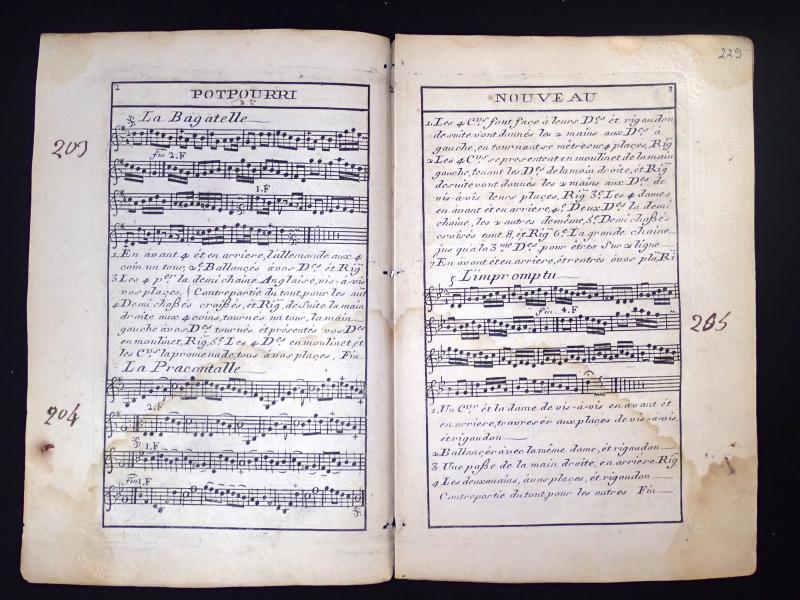 2
POTPOURRI
La Bagatelle
203
fin 2.F
1.F
1. En avant 4 et en arriere, l'allemande aux 4
coin un tour, 2.º Ballancés àvos D.es et Rig.n
3 Les 4 p.er la demi chaine Anglaise, vis-à-vis
vos places, Contrepartie du tout, pour les aut
4 Demi chaßés croißés, et Rig, de suite, la main
droite aux 4 coins, tournés un tour, la main
gauche àvos D.es tournés et présentés vos D.es
en moulinet, Rig, 5.º Les 4 D.es en moulinet, et
les C.rs la promenade, tous àvos plaçes, Fin
La Pracontalle
2.F
204
1.F
fin 1.F
229
3
NOUVEAU
1. Les 4 C.rs font façe à leurs D.es et rigaudon
de suite vont donnés les 2 mains aux D.es à
gauche, en tournant se metres sur 4 plaçes, Rig.n
2. Les 4 C.rs se presentent en moulinet de la main
gauche, tenant les D.es de la main droite, et Rig.n
de suite vont donnés les 2 mains aux D.es de
vis-à-vis leurs plaçes, Rig.n 3.º Les 4 dames
en avant et en arriere, 4.º Deux D.es la demi
chaine, les 2 autres demême, 5.º Demi chaßés
croisés tout 8, et Rig.n 6.º La grande chaine
jusqu'a la 3.me D.es pour êtres sur 2 ligne
7 En avant et en arriere, et rentrés à vos pla, Ri
L'impromptu
fin 4.F
205
1. Un C.er et la dame de vis-à-vis en avant et
en arriere, traverser aux plaçes de vis-à-vis,
et rigaudon
2 Ballançér avec la même dame, et rigaudon
3 Une paße de la main droite, en arriere Rig.n
4 Les deux mains, à vos plaçes, et rigaudon
Contrepartie du tout, pour les autres Fin